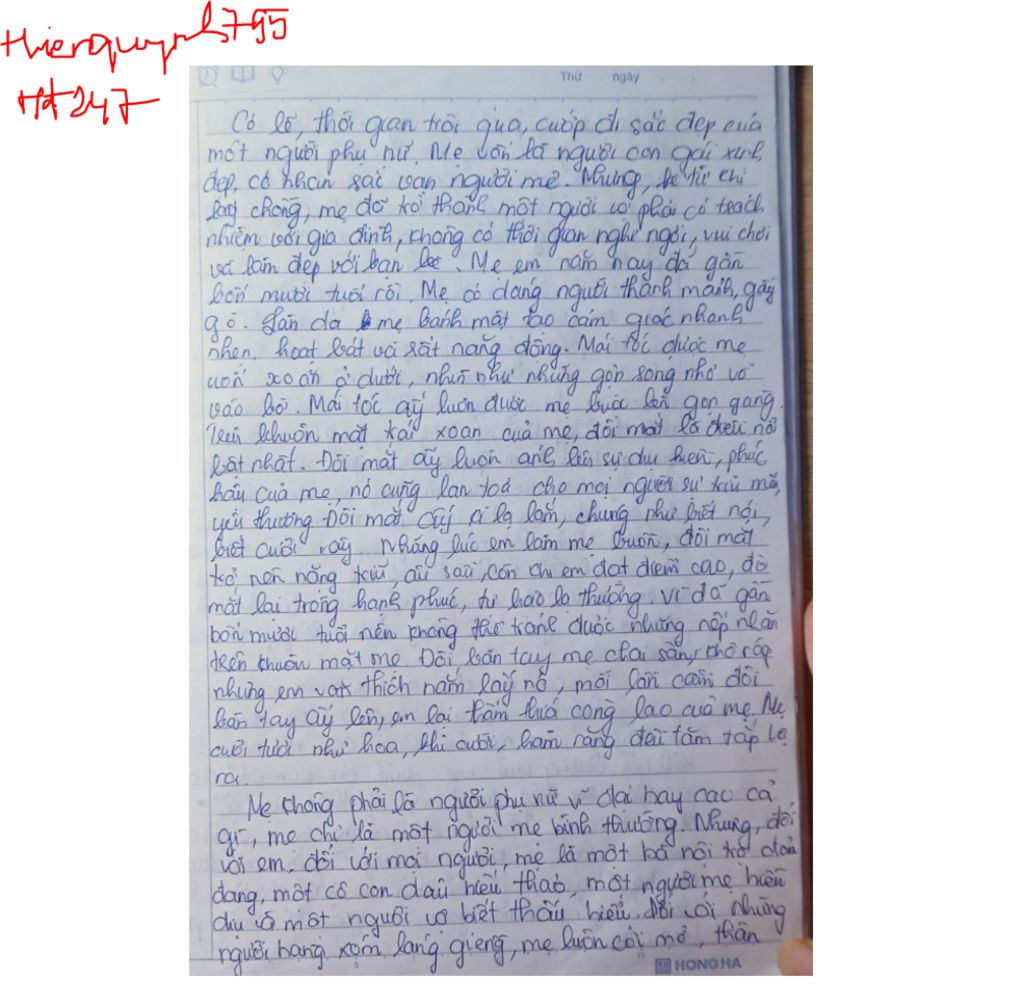 thienquynh795
Hd247
Thứ ngày
Có lẽ, thời gian trôi qua, cướp đi sắc đẹp của
một người phụ nữ. Mẹ vốn là người con gái xinh
đẹp, có nhan sắc vạn người mê. Nhưng, kể từ khi
lấy chồng, mẹ đã trở thành một người vợ phải có trách
nhiệm với gia đình, không có thời gian nghỉ ngơi, vui chơi
và làm đẹp với bạn bè. Mẹ em năm nay đã gần
bốn mươi tuổi rồi. Mẹ có dáng người thanh mảnh, gầy
gò. Làn da mẹ bánh mật tạo cảm giác nhanh
nhẹn, hoạt bát và rất năng động. Mái tóc được mẹ
uốn xoăn ở dưới, nhìn như những gợn sóng nhỏ vỗ
vào bờ. Mái tóc ấy luôn được mẹ buộc lên gọn gàng.
Trên khuôn mặt trái xoan của mẹ, đôi mắt là điều nổ
bật nhất. Đôi mắt ấy luôn ánh lên sự dịu hiền, phúc
hậu của mẹ, nó cũng lan toả cho mọi người sự trìu mến,
yêu thương. Đôi mắt ấy kì lạ lắm, chúng như biết nói,
biết cười vậy. Những lúc em làm mẹ buồn, đôi mắt
trở nên nặng trĩu, âu sầu, còn khi em đạt điểm cao, đô
mắt lại trông hạnh phúc, tự hào lạ thường. Vì đã gần
bốn mươi tuổi nên không thể tránh được những nếp nhăn
trên khuôn mặt mẹ. Đôi bàn tay mẹ chai sần, thô ráp
nhưng em vẫn thích nắm lấy nó, mỗi lần cầm đôi
bàn tay ấy lên, em lại thấm thía công lao của mẹ. Mẹ
cười tươi như hoa, khi cười, hàm răng đều tăm tắp lộ
ra.
Mẹ không phải là người phụ nữ vĩ đại hay cao cả
gì, mẹ chỉ là một người mẹ bình thường. Nhưng, đối
với em, đối với mọi người, mẹ là một bà nội trợ đảm
đang, một cô con dâu hiếu thảo, một người mẹ hiền
dịu và một người vợ biết thấu hiểu. Đối với những
người hàng xóm láng giềng, mẹ luôn cởi mở, thân
HONG HA